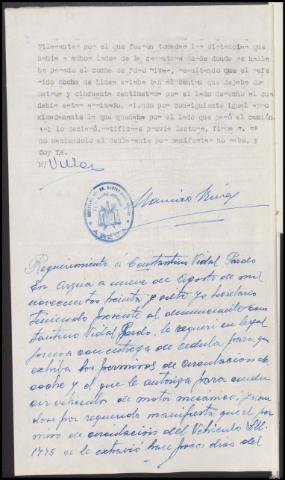 Villacentes por el que fueron tomadas las distancias que
había a ambos lados de la carretera desde donde se halla
ba parado el coche de resultando que el refe
rido coche de línea estaba tan el centro que dejaba do
metros y cincuenta centímetros por el lado derecho al que
debía estar arrimado, siendo por consiguiente igual apro
ximadamente la que quedaba por el lado que pasó el camión.
así lo declaró, ratifica previa lectura, firma S. Sª
no haciéndolo el declarante por manifestar no sabe, y
doy fe.
Villar
ARZUA
Mauricio
Requerimiento a Constantino Vidal Pardo
En Arzua a nueve de Agosto de mil
novecientos treinta y ocho yo Secretario
teniendo presente al denunciante Cons
tantino Vidal Pardo, le requerí en legal
forma con entrega de cédula para que
exhiba los permisos de circulación del
coche y el que le autoriza para condu
cir vehículos de motor mecánico, y dan
dose por requerido manifiesta que el per
miso de circulación del Vehículo
1775 se le extravió hace pocos días del